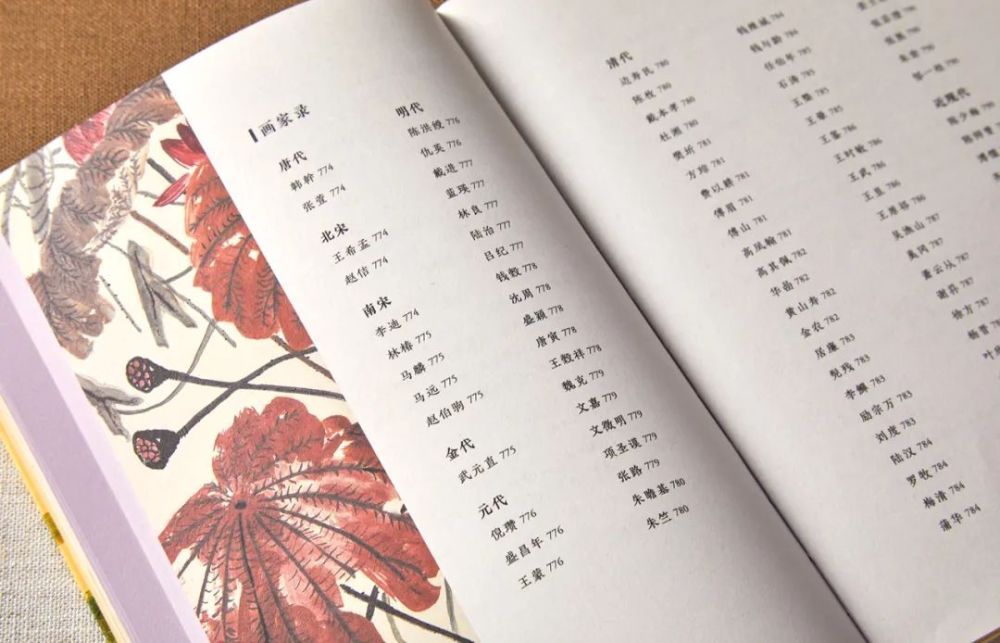 画家录
唐代
韩幹 774
张萱 774
北宋
王希孟 774
赵佶 774
南宋
李迪 774
林椿 775
马麟 775
马远 775
赵伯驹 775
金代
武元直 775
元代
倪瓒 776
盛昌年 776
王蒙 776
明代
陈洪绶 776
仇英 776
戴进 777
蓝瑛 777
林良 777
陆治 777
吕纪 777
钱榖 778
沈周 778
盛颖 778
唐寅 778
王榖祥 778
魏克 779
文嘉 779
文徵明 779
项圣谟 779
张路 779
朱瞻基 780
朱竺 780
清代
边寿民 780
陈枚 780
戴本孝 780
杜湘 780
樊圻 781
方琮 781
费以耕 781
傅眉 781
傅山 781
高凤翰 781
高其佩 782
华喦 782
黄山寿 782
金农 782
居廉 782
髡残 783
李鱓 783
励宗万 783
刘度 783
陆汉 784
罗牧 784
梅清 784
蒲华 784
钱维城 784
钱与龄 784
任伯年 785
石涛 785
王翚 785
王鉴 786
王时敏 786
王武 786
王昱 786
王原祁 786
吴渔山 787
奚冈 787
萧云从 787
谢荪 787
徐方 787
邹一桂
近现代